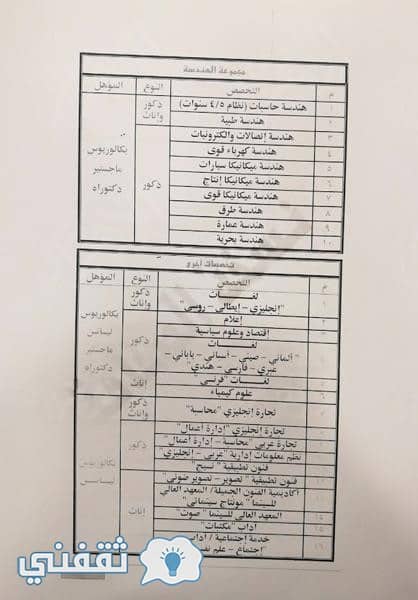 مجموعة الهندسة
م التخصص النوع المؤهل
١ هندسة حاسبات (نظام ٤/٥ سنوات) ذكور وإناث
٢ هندسة طبية
٣ هندسة إتصالات والكترونيات
٤ هندسة كهرباء قوى
٥ هندسة ميكانيكا سيارات
٦ هندسة ميكانيكا إنتاج
٧ هندسة ميكانيكا قوى
٨ هندسة طرق
٩ هندسة عمارة
١٠ هندسة بحرية
ذكور
بكالوريوس
ماجستير
دكتوراه
تخصصات أخرى
م التخصص النوع المؤهل
١ لغـــــات
"إنجليزي - ايطالى - روسي"
ذكور
وإناث
٢ إعلام
٣ إقتصاد وعلوم سياسية
لغـــــات
"ألماني - صيني - أسباني - ياباني -
عبري - فارسي - هندي"
ذكور
لغـــات "فرنسي"
٦ علوم كيمياء
إناث
بكالوريوس
ليسانس
ماجستير
دكتوراه
٧ تجارة إنجليزي "محاسبة"
ذكور
وإناث
تجارة إنجليزي "إدارة أعمال"
تجارة عربي "محاسبة - إدارة أعمال"
نظم معلومات إدارية "عربي - إنجليزي"
فنون تطبيقية "نسيج"
ذكور
فنون تطبيقية "تصوير - تصوير ضوئي"
أكاديمية الفنون الجميلة/ المعهد العالي
للسينما "مونتاج سينمائي"
١٤ المعهد العالي للسينما "صوت"
آداب "مكتبات"
خدمة إجتماعية / آداب
"إجتماع - علم
إناث
بكالوريوس
ليسانس
ثقفني